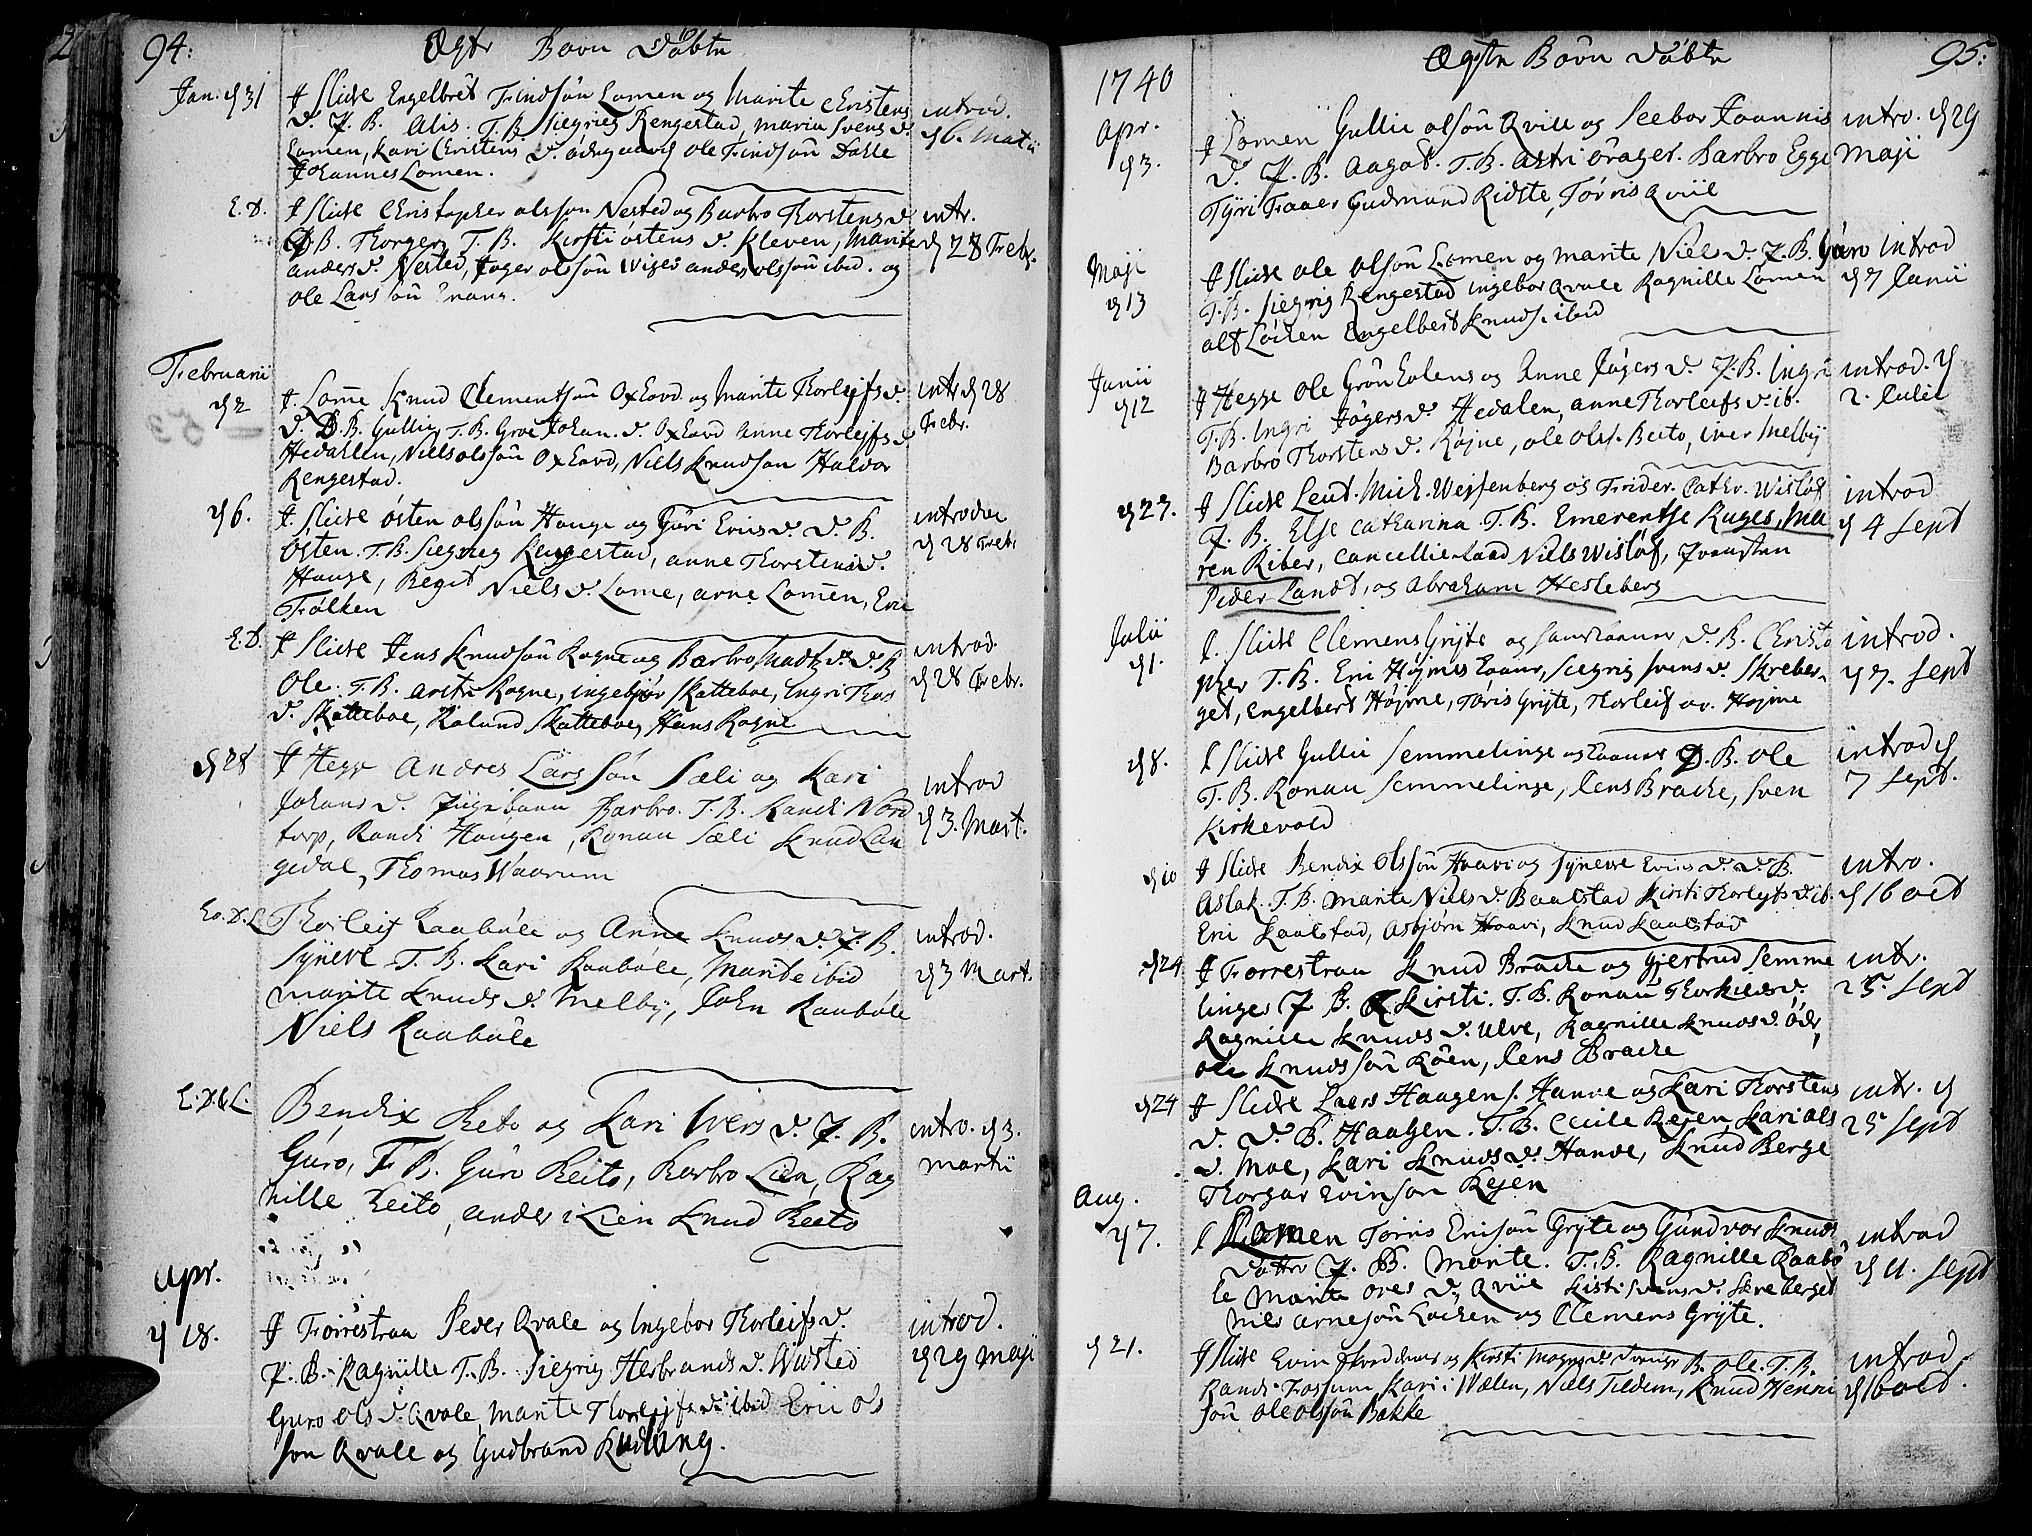 94:
Ægte Børn Døbte
Jan: d 31
J Slidre Engelbret Findsøn Lomen og Marite Christens
D. P. B. Alis. T. B. Siegrig Rengestad, Maria Svens D.
Lomen, Kari Christens D. Ødegaard Ole Findsøn Dahle
Johannes Lomen.
introd.
d 6. Martii
E. D.
J Slidre Christopher Olsson Nested og Barbro Thorstens D.
D B. Thorger. T. B. Kirsti Østens D. Kleven, Marite
Anders D. Nested, Joger Olssøn Anders Olssøn ibid. og
Ole Lars søn
intr.
d 28 Febr.
Februarii
d 2
J. Lome Knud Clementsøn Oxhovd og Marite Thorleifs D.
D. B. Gullic, T. B. Groe Johan. D. Oxhovd Anne Thorleifs D
Hedahlen, Niels Olssøn Oxhovd, Niels Knudsøn Haldor
Rengestad.
intr d 28
Febr.
d 6.
J. Slidre Østen Olssøn Hauge og Guri Erics D. D. B.
Østen. T. B. Siegrieg Rengestad, Anne Thorstens D.
Hauge, Begit Niels D. Lome, Arne Lomen, Eric
Følken
introduc
d 28 Febr
E. D.
J Slidre Jens Knudsøn Rogne og Barbro Mads D. D. B
Ole. T. B. Rogne, Ingebjør Skatteboe, Ingri Thor
D. Skatteboe, Skatteboe, Hans Rogne
introd.
d 28 Febr.
d 28
J Hegge Andres Larssøn Sæli og Kari
Johans D. Pigebarn Barbro. T. B. Randi Nord
torp, Randi Haugen, Ronau Sæli Knud Lan
gedal, Thomas Waarum
introd
d 3. Mart.
Eo. D. L.
Thorleif Raabøle og Anne Knuds D. P. B.
Syneve T. B. Kari Raabøle, Marite ibid
Marite Knuds D. Melby, John Raabøle
Niels Raabøle
introd.
d 3 Mart.
E. D. & L.
Bendix Beto og Kari Ivers D. P. B.
Guro, T. B. Guro Beito, Barbro Lien, Rag
nille Beito, Anders i Lien Knud Beito
intro. d 3.
Martii
Apr.
d 18.
J Forrestraa Peder Qvale og Ingebor Thorleifs D.
P. B. Ragnille T. B. Siegrig Herbrands D.
Guro Ols D. Qvale, Marite Thorleifs D. ibid Eric Ols
søn Qvale og Gudbrand
introd.
d 29 Maji
1740
Ægte Børn Døbte
95:
Apr.
d 3.
J Lomen Gullic Olsøn Qvile og Seebor Joannis
D. P. B. Aagot. T. B. Astri Drager. Barbro Egge
Tyri Faaer Gudmund Ridste, Tørris Qviil
intro. d 29
Maji
Maji
d 13
J Slidre Ole Olsøn Lomen og Marite Niels D. P. B. Guro
T. B. Siegrig Rengestad Ingebor Qvale Ragnille Lomen
Alf Løcken Engelbert Knuds. ibid
introd
d 7 Junii
Junii
d 12
J Hegge Ole Grønholens og Anne Jøgers D. P. B. Ingri
T. B. Ingri Jøgers D. Hedalen, Anne Thorleifs D. ib.
Barbro Thorstens D. Røjne, Ole Ols. Beito, Iver Melby
introd. d
2. Julii
d 27.
J Slidre Leut. Mich. Weissenberg og Frider. Cathr. Wisløf
P. B. Else Catharina. T. B. Emerentse Ruges, Ma
ren Riber, Cancellie-Raad Niels Wisløf, Provsten
Peder Landt, og Abraham Hesleberg
introd
d 4 Sept
Julii
d 1.
J. Slidre Clemens Gryte og D. B. Christo
pher T. B. Eric Højmes, Siegrig Svens D. Skreber-
get, Engelbert Højme, Tøris Gryte, Thorleif Højme
introd.
d 7. Sept
d 8.
J Slidre Gullic Semmelinge og D. B. Ole
T. B. Ronau Semmelinge, Jens Bracke, Sven
Kirkevold
introd d
7 Sept.
d 10
J Slidre Bendix Olssøn Haavi og Syneve Erics D. D. B.
Aslak. T. B. Marite Niels D. Baalstad Kirsti Thorleifs D. ib.
Eric Kaalstad, Asbjørn Haavi, Knud Kaalstad
intro.
d 16 oct
d 24
J Forrestraa Knud Bracke og Gjertrud Semme
linges P. B. Kirsti. T. B. Ronau Thorkilds D.
Ragnille Knuds D. Ulve, Ragnille Knuds D.
Ole Knudssøn Køen, Jens Bracke
intr.
25 Sept
d 24
J Slidre Laers Haagens. Hande og Kari Thorstens
D. D. B. Haagen. T. B. Cecile Rejen, Kari Ols
D. Moe, Kari Knuds D. Hande, Knud Berge
Thorgar Evinson Rejen
intr. d
25 Sept
Aug.
d 7.
J Lomen Tørris Ericsøn Gryte og Gundvor Knuds
Datter P. B. Marite. T. B. Ragnille Raabø
le Marite D. Qviil Kisti Svens D. Skreberget
Niels Arnesøn Løcken og Clemens Gryte.
introd
d 11. Sept
d 21.
J Slidre Evin og Kirsti D. B. Ole. T. B.
Randi Fossum, Kari i Wælen, Niels Tildem, Knud Henri
søn Ole Olsøn Bakke
introd.
d 16 oct.